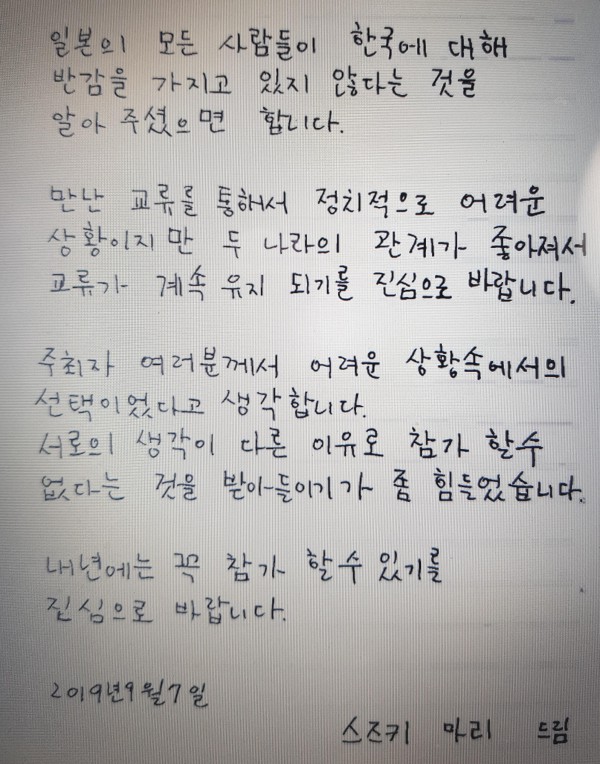 일본의 모든 사람들이 한국에 대해
반감을 가지고 있지 않다는 것을
알아 주셨으면 합니다.
만난 교류를 통해서 정치적으로 어려운
상황이지만 두 나라의 관계가 좋아져서
교류가 계속 유지 되기를 진심으로 바랍니다.
주최자 여러분께서 어려운 상황속에서의
선택이었다고 생각합니다.
서로의 생각이 다른 이유로 참가 할수
없다는 것을 받아들이기가 좀 힘들었습니다.
내년에는 꼭 참가 할수 있기를
진심으로 바랍니다.
2019년9월7일
스즈키 마리 드림